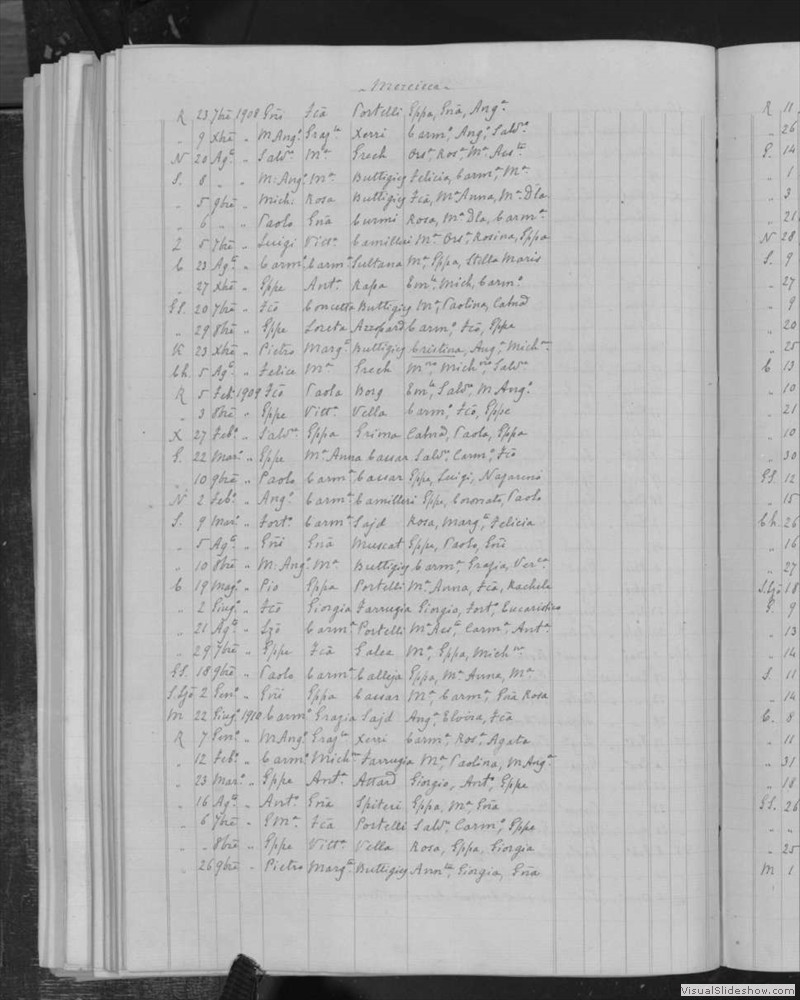 Mercieca
R 23 7bre 1908 Gñi Fcã Portelli Gppa, Gñã, Angª
" 9 Xbre " M Angº Grazª Xerri Carmº, Angº, Salvº
N 20 Agº " Salvº Mª Grech Orsª, Rosª, Mª Assᵗª
S. 8 " " M: Angº Mª Buttigieg Felicia, Carmª, Mª
" 5 9bre " Mich: Rosa Buttigieg Fcã, Mª Anna, Mª Dla
" 6 " " Paolo Gñã Curmi Rosa, Mª Dla, Carmª
Z 5 7bre " Luigi Vittª Camilleri Mª Orsª, Rosina, Gppa
C 23 Agº " Carmº Carmª Sultana Mª, Gppa, Stella Maris
" 27 Xbre " Gppe Antª Rapa Emº, Mich, Carmº
GS. 20 7bre " Fcõ Concetta Buttigieg Mª, Paolina, Catnã
" 29 8bre " Gppe Loreta Azzopard Carmº, Fcõ, Gppa
K 23 Xbre " Pietro Margª Buttigieg Cristina, Augº, Michⁿᵃ
Ch. 5 Agº " Felice Mª Grech Mⁿᵃ, Michⁿᵃ, Salvª
R 5 Feb: 1909 Fcõ Paola Borg Emº, Salvª, M Angº
" 3 8bre " Gppe Vittª Vella Carmº, Fcõ, Gppe
X 27 Febº " Salvº Gppa Grima Catnã, Paola, Gppa
G. 22 Marº " Gppe Mª Anna Cassar Salvº, Carmº, Fcõ
" 10 9bre " Paolo Carmª Cassar Gppa, Luigi, Nazareno
N 2 Febº " Angº Carmª Camilleri Gppe, Coronato, Paolo
S. 9 Marº " Fortº Carmª Sajd Rosa, Margª, Felicia
" 5 Agº " Gñi Gñã Muscat Gppe, Paolo, Gñi
" 10 8bre " M: Angº Mª Buttigieg Carmª, Grazia, Verᶜª
C 19 Magº " Pio Gppa Portelli Mª Anna, Fcã, Rachela
" 2 Giugº " Fcõ Giorgia Farrugia Giorgio, Fortº Eucaristico
" 21 Agº " Lzõ Carmª Portelli Mª Assᵗª, Carmª, Antª
" 29 7bre " Gppe Fcã Galea Mª, Gppa, Michⁿᵃ
GS. 18 9bre " Paolo Carmª Calleja Gppa, Mª Anna, Mª
S. Lzõ 2 Genº " Gñi Gppa Cassar Mª, Carmª, Gñã Rosa
M 22 Giugº 1910 Carmº Grazia Sajd Angª, Elvira, Fcã
R 7 Genº " M Angº Grazª Xerri Carmº, Rosª, Agata
" 12 Febº " Carmº Michⁿᵃ Farrugia Mª, Paolina, M Angª
" 23 Marº " Gppe Antª Attard Giorgio, Antº, Gppe
" 16 Agº " Antº Gñã Spiteri Gppa, Mª, Gñã
" 6 7bre " G Mª Fcã Portelli Salvº, Carmº, Gppe
" " 8bre " Gppe Vittª Vella Rosa, Gppa, Giorgia
" 26 9bre " Pietro Margª Buttigieg Annᵗª, Giorgia, Gñã
R 11
" 26
G. 14
" 1
" 3
" 21
N 28
S. 9
" 27
" 9
" 20
" 25
C 13
" 10
" 21
" 10
" 30
GS. 12
" 15
Ch. 26
" 16
" 27
S. Lzõ 18
G. 9
" 13
" 14
S. 11
" 14
C. 8
" 11
" 31
" 18
GS. 26
" "
" 25
M 1
VisualSlideshow.com